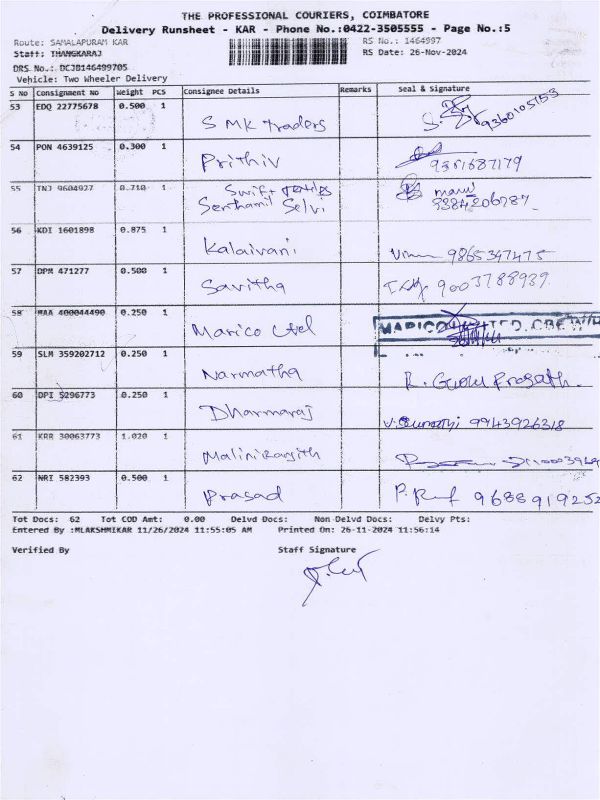 THE PROFESSIONAL COURIERS, COIMBATORE
Delivery Runsheet - KAR - Phone No.:0422-3505555 - Page No.:5
Route: SAMALAPURAM KAR RS No.: 1464997
Staff: THANGKARAJ RS Date: 26-Nov-2024
DRS No.: DCJB146499705
Vehicle: Two Wheeler Delivery
S No Consignment No Weight PCS Consignee Details Remarks Seal & Signature
53 EDQ 22775678 0.500 1 SMK Traders 9360105153
54 PON 4639125 0.300 1 Prithiv 9361687179
55 TNJ 9604927 0.710 1 Swift
Senthamil Selvi
56 KDI 1601898 0.875 1 Kalaivani 9865347475
57 DPM 471277 0.500 1 Savitha 9003788939
58 MAA 400044490 0.250 1 Marico Ltd MARICO
59 SLM 359202712 0.250 1 Narmatha R. Guru Prasath.
60 DPI 5296773 0.250 1 Dharmaraj 9943926318
61 KRR 30063773 1.020 1
62 NRI 582393 0.500 1 Prasad 9688919252
Tot Docs: 62 Tot COD Amt: 0.00 Delvd Docs: Non-Delvd Docs: Delvy Pts:
Entered By :MLAKSHMIKAR 11/26/2024 11:55:05 AM Printed On: 26-11-2024 11:56:14
Verified By Staff Signature